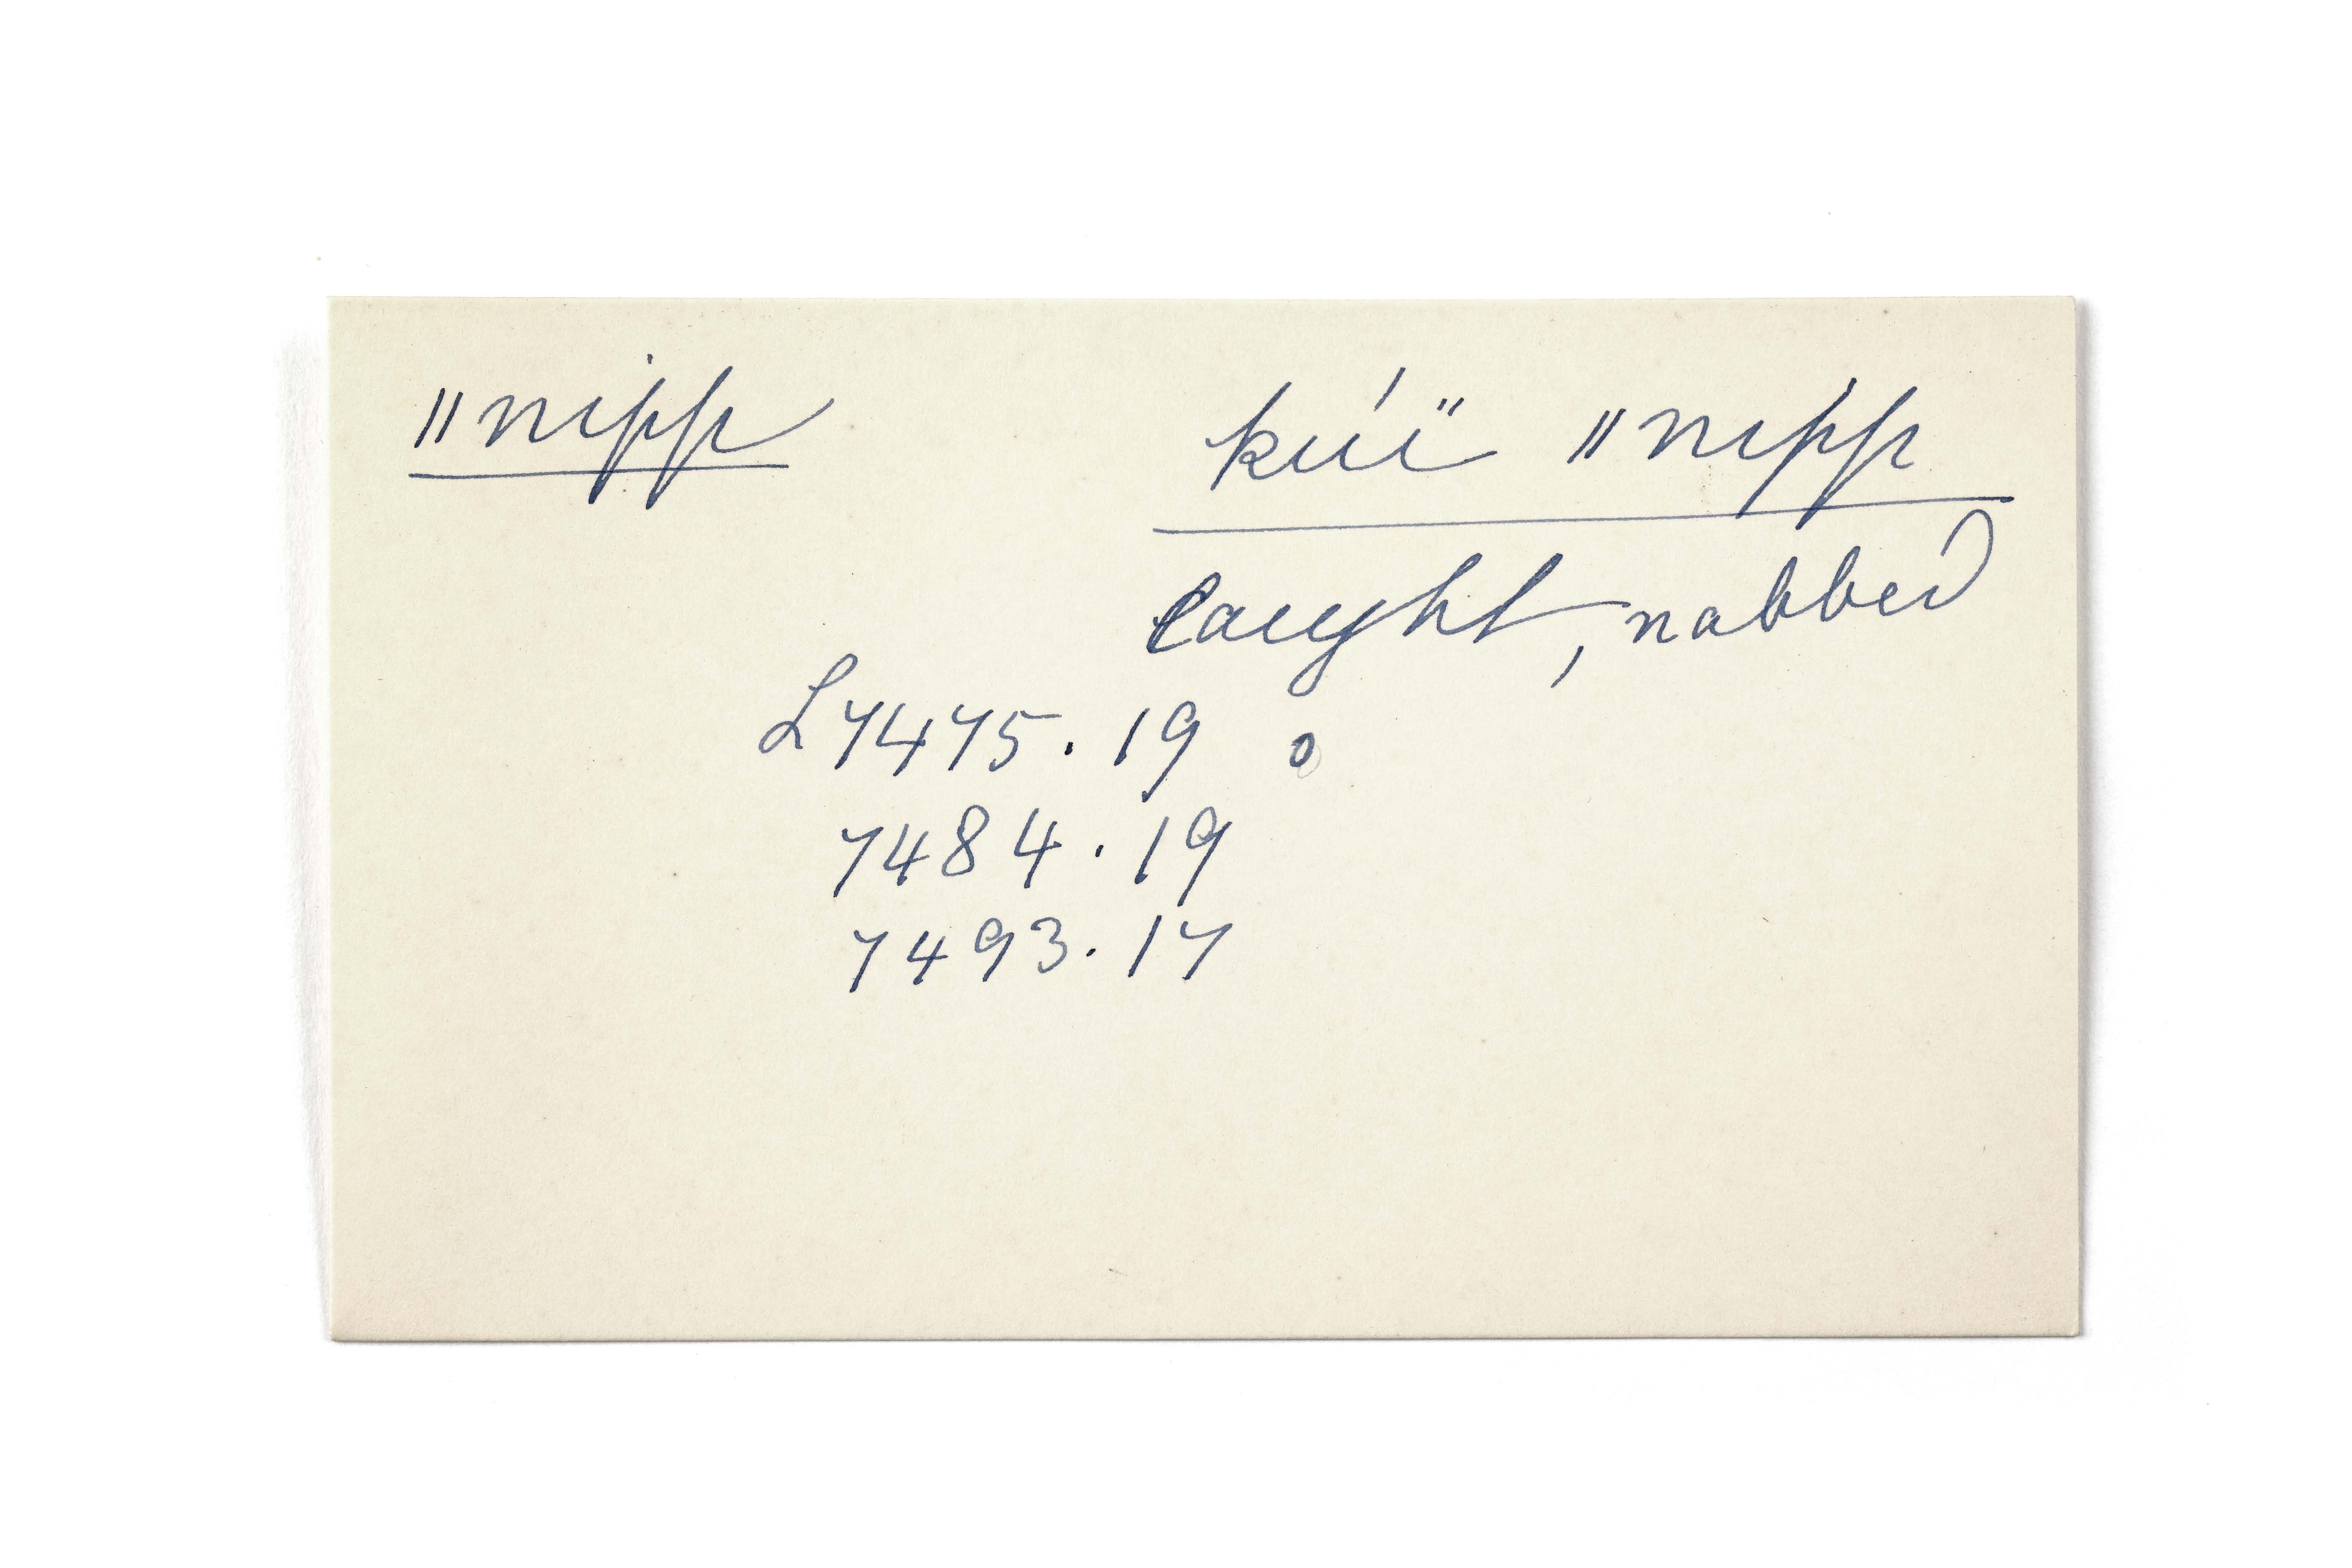 "nipp kúï "nipp
caught, nabbed
L7475.19 o
7484.19
7493.17